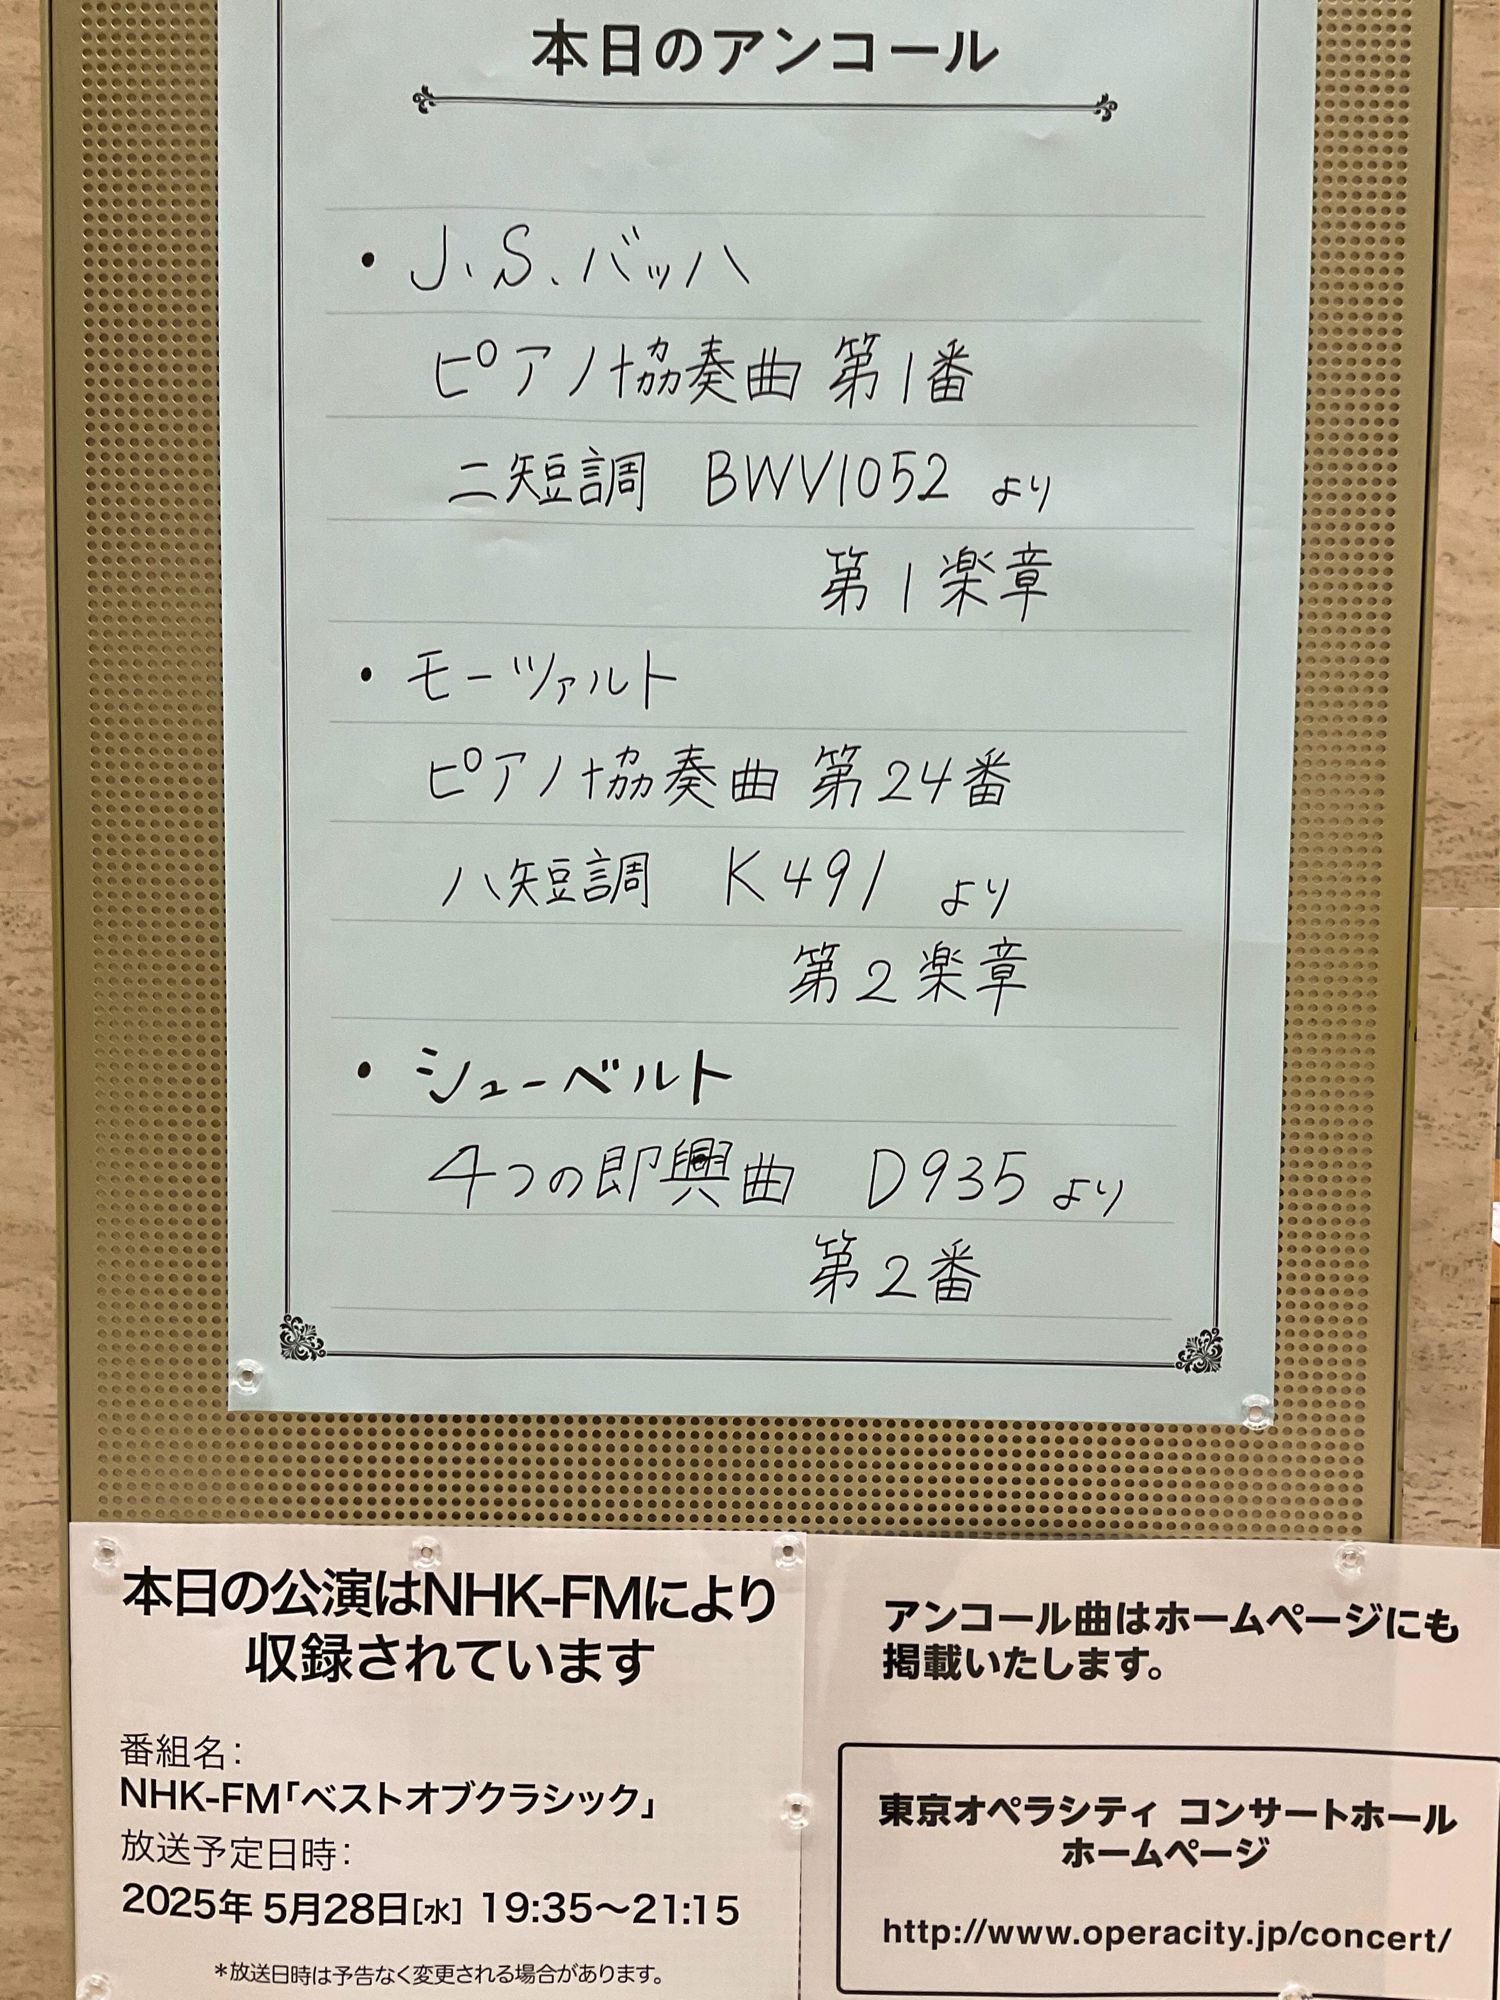 本日のアンコール
・J.S.バッハ
ピアノ協奏曲 第1番
ニ短調 BWV1052 より
第1楽章
・モーツァルト
ピアノ協奏曲 第24番
ハ短調 K491 より
第2楽章
・シューベルト
4つの即興曲 D935 より
第2番
本日の公演はNHK-FMにより
収録されています
番組名：
NHK-FM「ベストオブクラシック」
放送予定日時：
2025年 5月28日[水] 19:35〜21:15
*放送日時は予告なく変更される場合があります。
アンコール曲はホームページにも
掲載いたします。
東京オペラシティ コンサートホール
ホームページ
http://www.operacity.jp/concert/